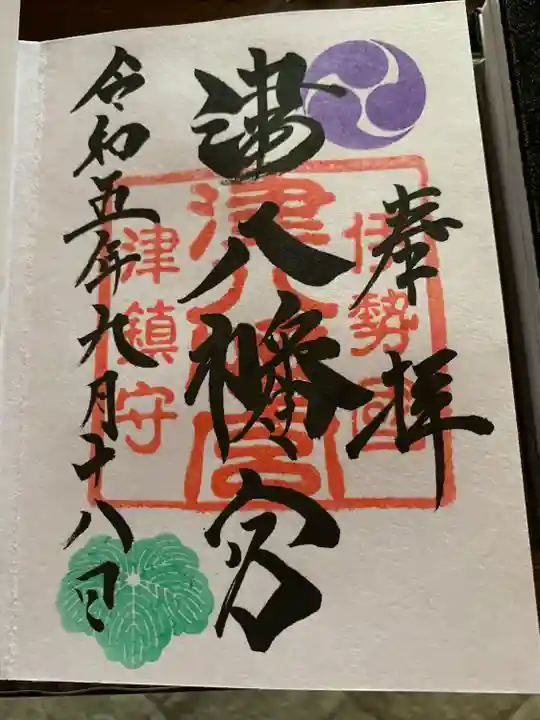 奉拝
伊勢國
津八幡宮
津八幡宮
津鎮守
令和五年九月十八日